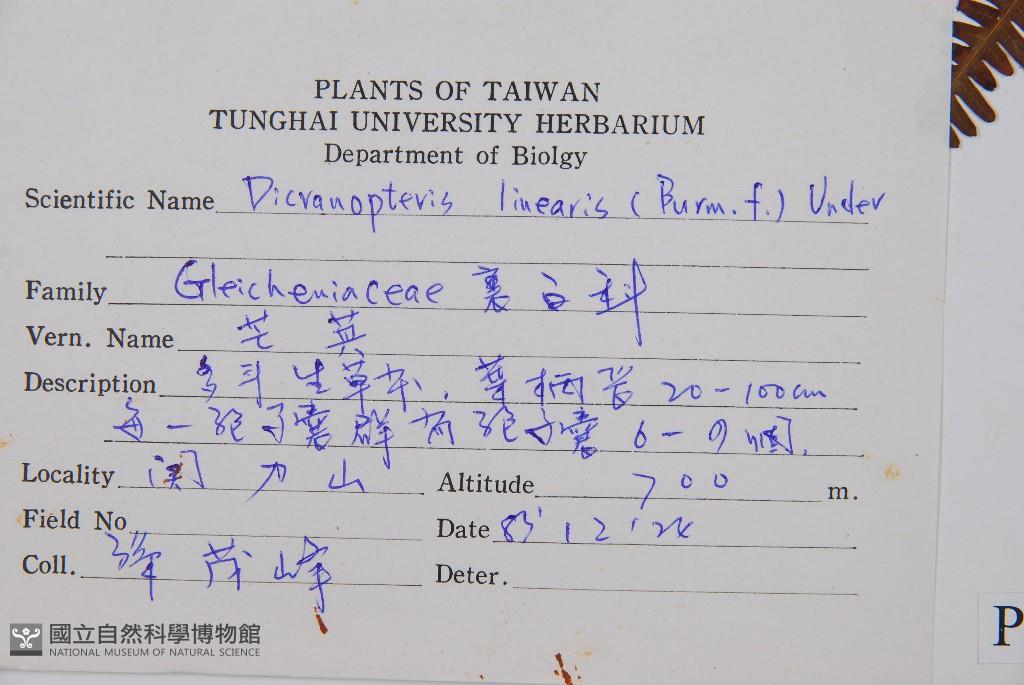 PLANTS OF TAIWAN
TUNGHAI UNIVERSITY HERBARIUM
Department of Biolgy
Scientific Name Dicranopteris linearis (Burm. f.) Under
Family Gleicheniaceae 裏白科
Vern. Name 芒萁
Description 多年生草本, 葉柄長 20-100cm
每一孢子囊群有孢子囊 6-9個.
Locality 関刀山 Altitude 700 m.
Field No
Date 83' 12' 24
Coll. 茂峰 Deter.
國立自然科學博物館
NATIONAL MUSEUM OF NATURAL SCIENCE
P